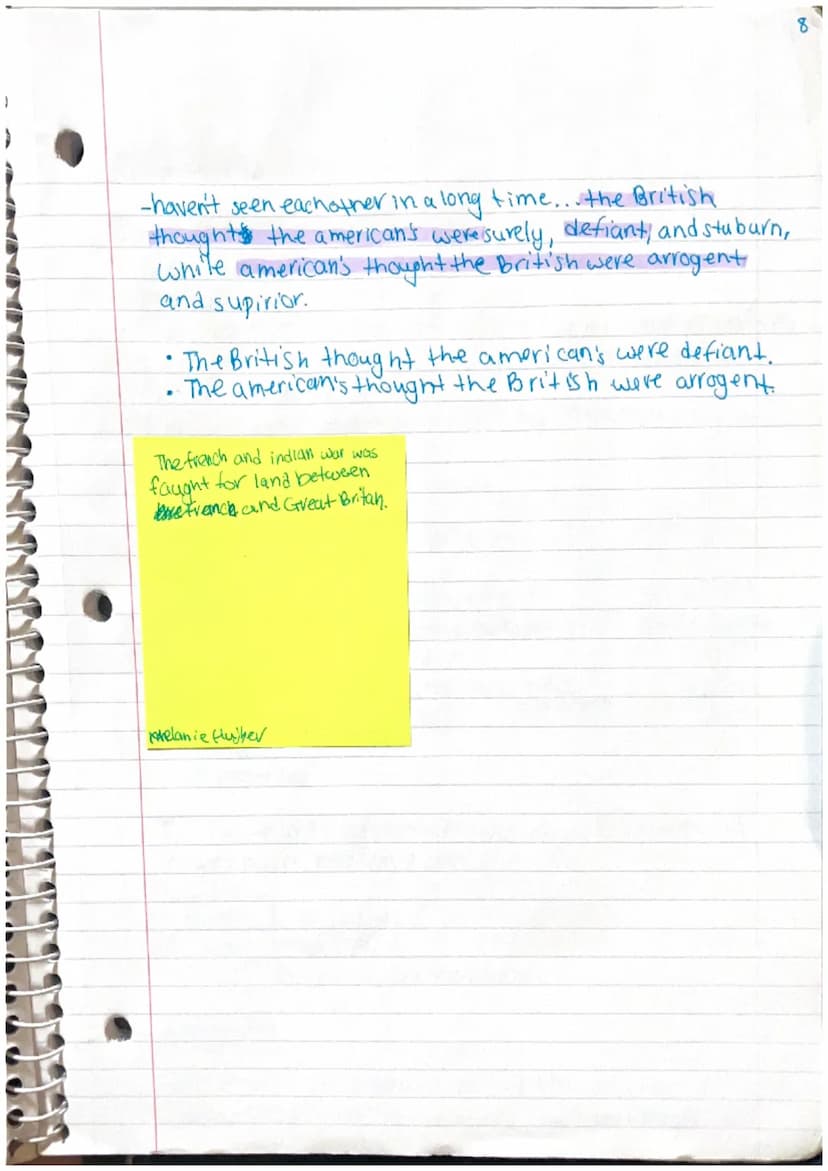 8
-haven't seen eachother in a long time... the British
thought the american's were surely, defiant, and stuburn,
while american's thought the British were arrogent
and supirior.
• The British thought the american's were defiant.
• The american's thought the British were arrogent.
The french and indian war was
faught for land between
french and Great Britan.
Melanie